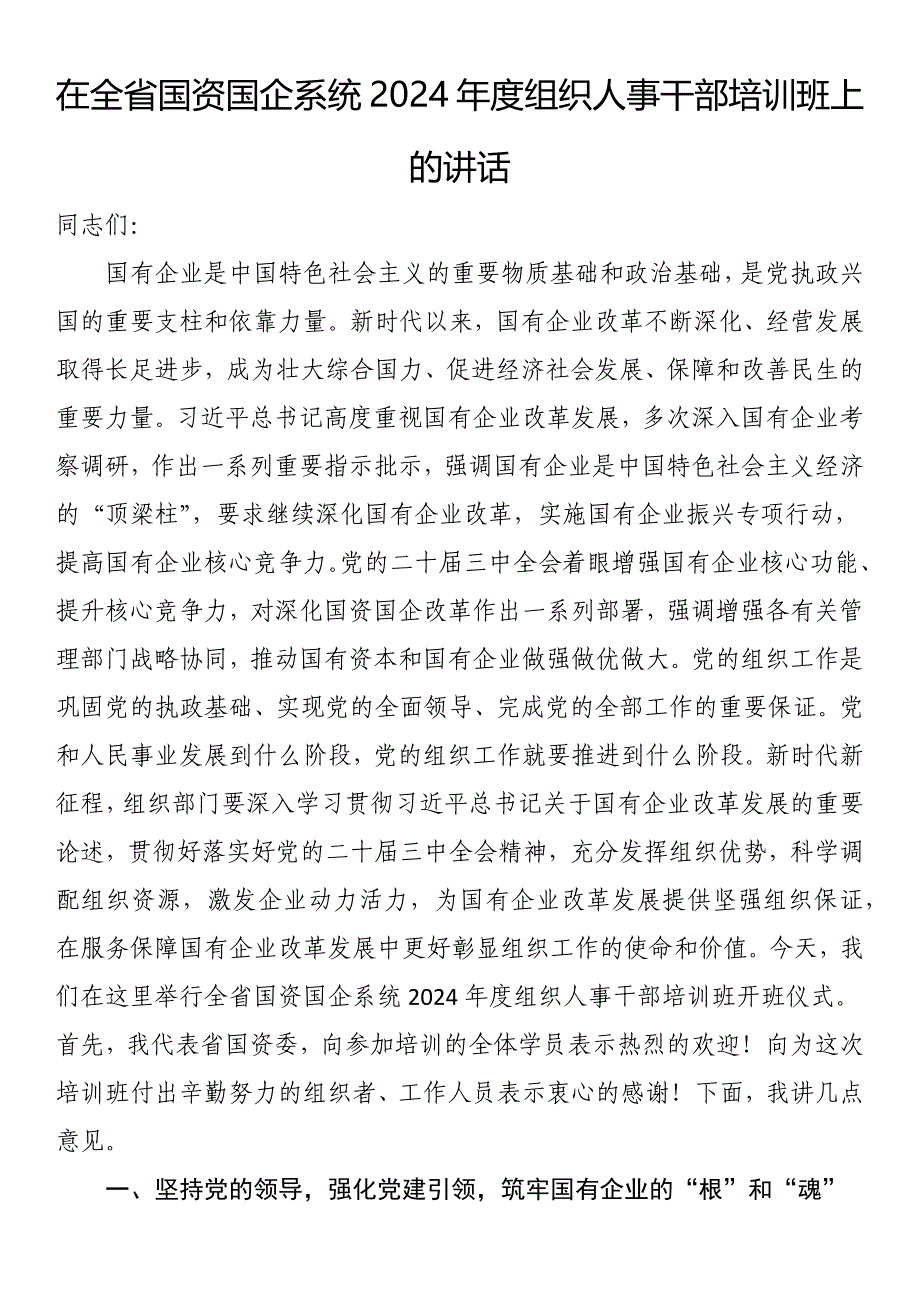 在全省国资国企系统 2024 年度组织人事干部培训班上
的讲话
同志们：
国有企业是中国特色社会主义的重要物质基础和政治基础，是党执政兴
国的重要支柱和依靠力量。新时代以来，国有企业改革不断深化、经营发展
取得长足进步，成为壮大综合国力、促进经济社会发展、保障和改善民生的
重要力量。习近平总书记高度重视国有企业改革发展，多次深入国有企业考
察调研，作出一系列重要指示批示，强调国有企业是中国特色社会主义经济
的“顶梁柱”，要求继续深化国有企业改革，实施国有企业振兴专项行动，
提高国有企业核心竞争力。党的二十届三中全会着眼增强国有企业核心功能、
提升核心竞争力，对深化国资国企改革作出一系列部署，强调增强各有关管
理部门战略协同，推动国有资本和国有企业做强做优做大。党的组织工作是
巩固党的执政基础、实现党的全面领导、完成党的全部工作的重要保证。党
和人民事业发展到什么阶段，党的组织工作就要推进到什么阶段。新时代新
征程，组织部门要深入学习贯彻习近平总书记关于国有企业改革发展的重要
论述，贯彻好落实好党的二十届三中全会精神，充分发挥组织优势，科学调
配组织资源，激发企业动力活力，为国有企业改革发展提供坚强组织保证，
在服务保障国有企业改革发展中更好彰显组织工作的使命和价值。今天，我
们在这里举行全省国资国企系统 2024 年度组织人事干部培训班开班仪式。
首先，我代表省国资委，向参加培训的全体学员表示热烈的欢迎！向为这次
培训班付出辛勤努力的组织者、工作人员表示衷心的感谢！下面，我讲几点
意见。
一、坚持党的领导，强化党建引领，筑牢国有企业的“根”和“魂”